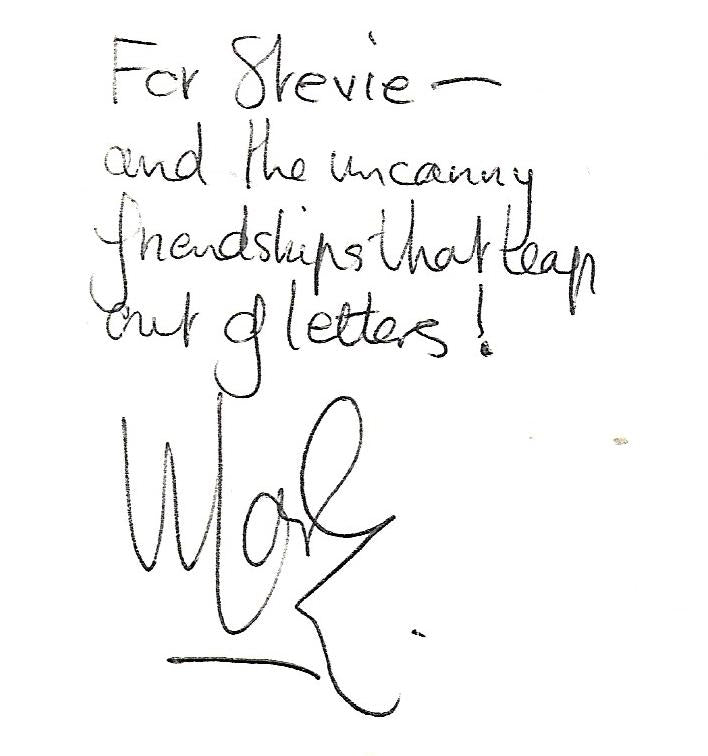 For Stevie —
and the uncanny
friendships that leap
out of letters!
Mark